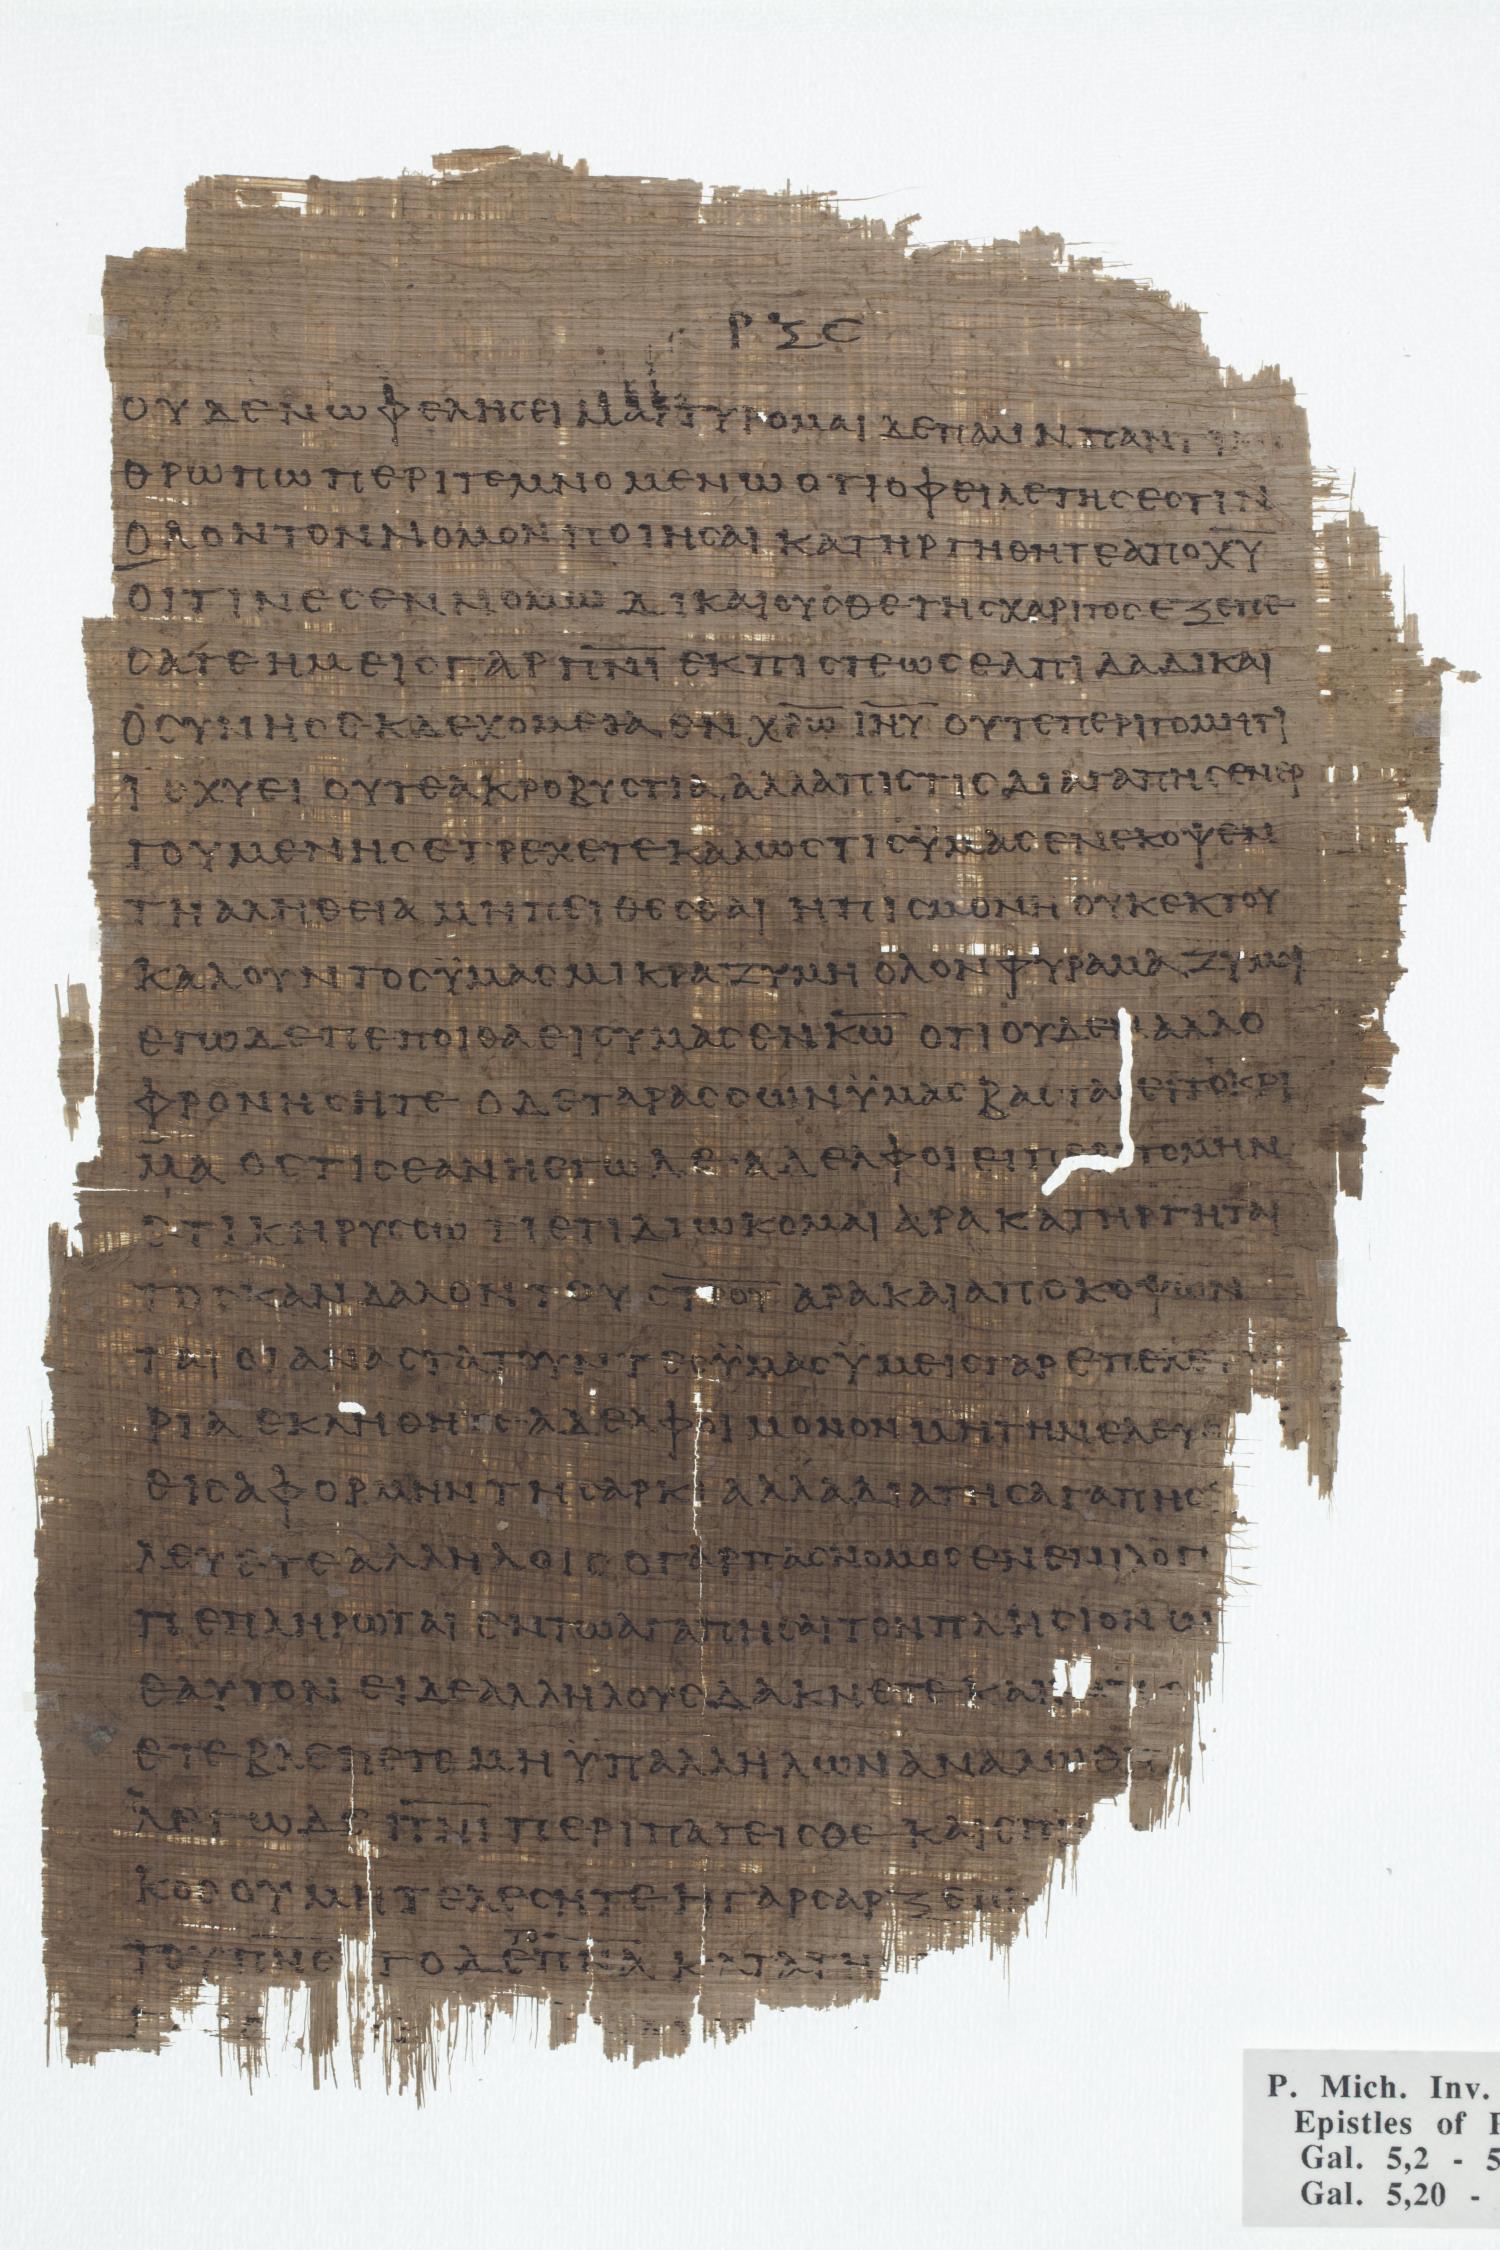 ΡΞϹ
ΟΥΔΕΝΩΦΕΛΗϹΕΙΜΑΡΤΥΡΟΜΑΙΔΕΠΑΛΙΝΠΑΝΤΙ
ΘΡΩΠΩΠΕΡΙΤΕΜΝΟΜΕΝΩΟΤΙΟΦΕΙΛΕΤΗϹΕϹΤΙΝ
ΟΛΟΝΤΟΝΝΟΜΟΝΠΟΙΗϹΑΙΚΑΤΗΡΓΗΘΗΤΕΑΠΟΧ̅Υ̅
ΟΙΤΙΝΕϹΕΝΝΟΜΩΔΙΚΑΙΟΥϹΘΕΤΗϹΧΑΡΙΤΟϹΕΞΕΠΕ
ϹΑΤΕΗΜΕΙϹΓΑΡΠ̅Ν̅Ι̅ΕΚΠΙϹΤΕΩϹΕΛΠΙΔΑΔΙΚΑΙ
ΟϹΥΝΗϹΕΚΔΕΧΟΜΕΘΑΕΝΧ̅Ρ̅Ω̅Ι̅Η̅Υ̅ΟΥΤΕΠΕΡΙΤΟΜΗΤΙ
ΙϹΧΥΕΙΟΥΤΕΑΚΡΟΒΥϹΤΙΑΑΛΛΑΠΙϹΤΙϹΔΙΑΓΑΠΗϹΕΝΕΡ
ΓΟΥΜΕΝΗϹΕΤΡΕΧΕΤΕΚΑΛΩϹΤΙϹΫΜΑϹΕΝΕΚΟΨΕΝ
ΤΗΑΛΗΘΕΙΑΜΗΠΕΙΘΕϹΘΑΙΗΠΙϹΜΟΝΗΟΥΚΕΚΤΟΥ
ΚΑΛΟΥΝΤΟϹΫΜΑϹΜΙΚΡΑΖΥΜΗΟΛΟΝΦΥΡΑΜΑΖΥΜΙ
ΕΓΩΔΕΠΕΠΟΙΘΑΕΙϹΥΜΑϹΕΝΚ̅Ω̅ΟΤΙΟΥΔΕΝΑΛΛΟ
ΦΡΟΝΗϹΗΤΕΟΔΕΤΑΡΑϹϹΩΝΫΜΑϹΒΑϹΤΑϹΕΙΤΟΚΡΙ
ΜΑΟϹΤΙϹΕΑΝΗΕΓΩΔΕΑΔΕΛΦΟΙΕΙΠΕΡΙΤΟΜΗΝ
ΕΤΙΚΗΡΥϹϹΩΤΙΕΤΙΔΙΩΚΟΜΑΙΑΡΑΚΑΤΗΡΓΗΤΑΙ
ΤΟϹΚΑΝΔΑΛΟΝΤΟΥϹ̅Τ̅Ρ̅Ο̅Υ̅ΑΡΑΚΑΙΑΠΟΚΟΨΩΝ
ΤΑΙΟΙΑΝΑϹΤΑΤΟΥΝΤΕϹΫΜΑϹΫΜΕΙϹΓΑΡΕΠΕΛΕ
ΡΙΑΕΚΛΗΘΗΤΕΑΔΕΛΦΟΙΜΟΝΟΝΜΗΤΗΝΕΛΕΥΘ
ΘΙϹΑΦΟΡΜΗΝΤΗϹΑΡΚΙΑΛΛΑΔΙΑΤΗϹΑΓΑΠΗϹ
ΛΕΥΕΤΕΑΛΛΗΛΟΙϹΟΓΑΡΠΑϹΝΟΜΟϹΕΝΕΝΙΛΟΓ
ΠΕΠΛΗΡΩΤΑΙΕΝΤΩΑΓΑΠΗϹΑΙΤΟΝΠΛΗϹΙΟΝ
ΕΑΥΤΟΝΕΙΔΕΑΛΛΗΛΟΥϹΔΑΚΝΕΤΕΚΑΙ
ΕΤΕΒΛΕΠΕΤΕΜΗΫΠΑΛΛΗΛΩΝΑΝΑΛΩΘ
ΛΕΓΩΔΕΠ̅Ν̅Ι̅ΠΕΡΙΠΑΤΕΙϹΘΕΚΑΙΕΠΙ
ΚΟϹΟΥΜΗΤΕΛΕϹΗΤΕΗΓΑΡϹΑΡΞΕΠΙ
ΤΟΥΠ̅Ν̅Ϲ̅ΤΟΔΕΠ̅Ν̅Α̅ΚΑΤΑΤΗ
P. Mich. Inv.
Epistles of
Gal. 5,2 - 5
Gal. 5,20 -